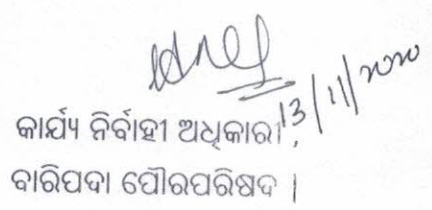 13/11/2020
କାର୍ଯ୍ୟ ନିର୍ବାହୀ ଅଧିକାରୀ,
ବାରିପଦା ପୌରପରିଷଦ |